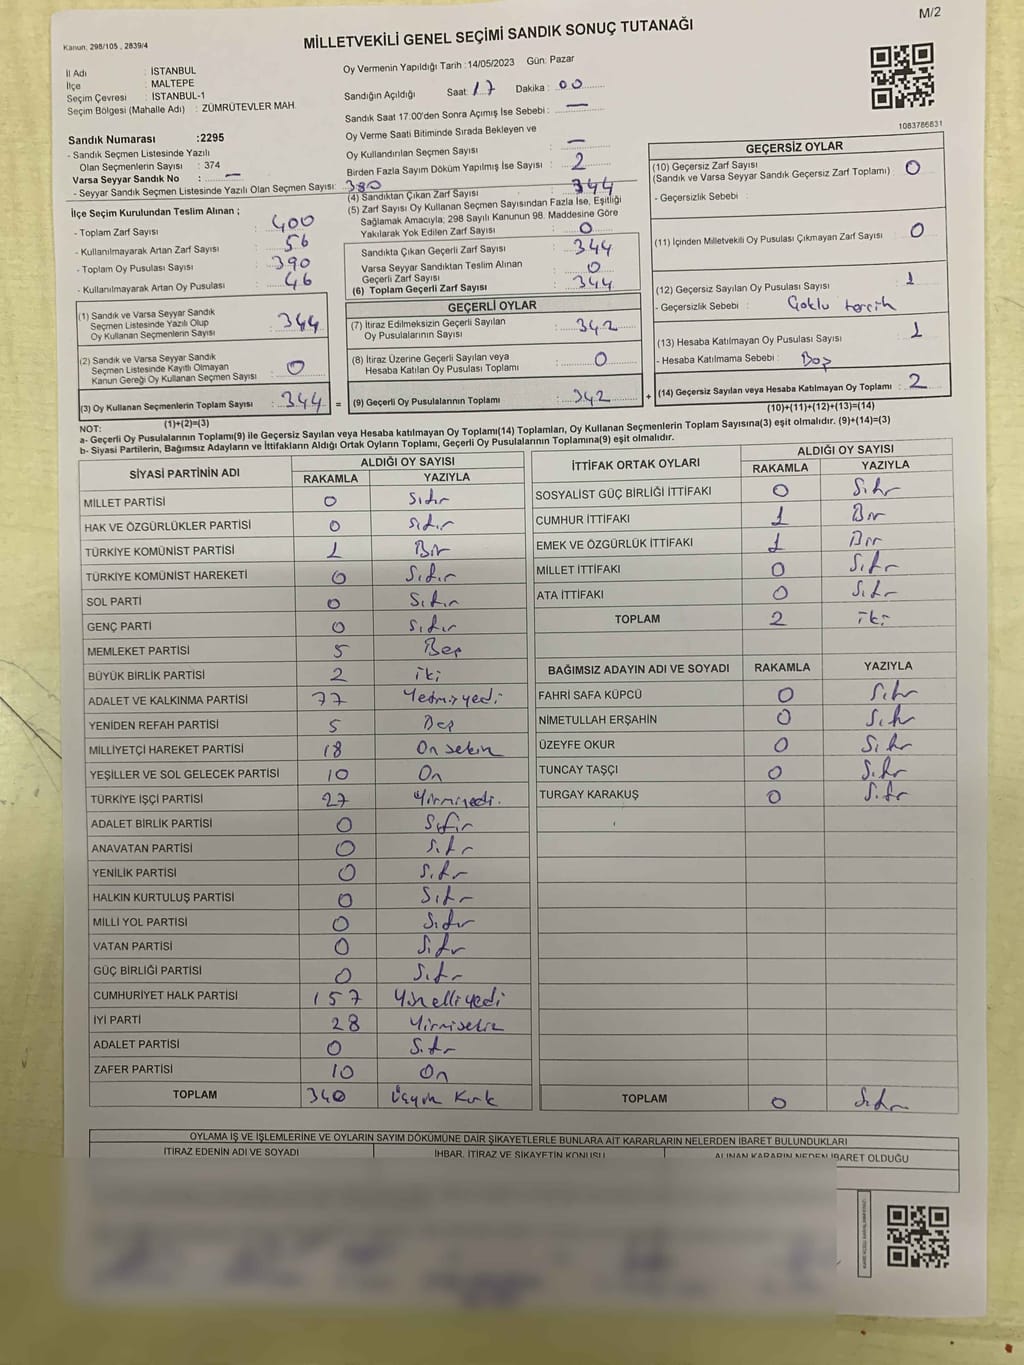 M/2
Kanun, 298/105 , 2839/4
MİLLETVEKİLİ GENEL SEÇİMİ SANDIK SONUÇ TUTANAĞI
İl Adı : İSTANBUL
İlçe : MALTEPE
Seçim Çevresi : İSTANBUL-1
Seçim Bölgesi (Mahalle Adı) : ZÜMRÜTEVLER MAH.
Sandık Numarası :2295
- Sandık Seçmen Listesinde Yazılı
Olan Seçmenlerin Sayısı : 374
Varsa Seyyar Sandık No : —
- Seyyar Sandık Seçmen Listesinde Yazılı Olan Seçmen Sayısı: 380
İlçe Seçim Kurulundan Teslim Alınan ;
- Toplam Zarf Sayısı : 400
- Kullanılmayarak Artan Zarf Sayısı : 56
- Toplam Oy Pusulası Sayısı : 390
- Kullanılmayarak Artan Oy Pusulası : 46
(1) Sandık ve Varsa Seyyar Sandık
Seçmen Listesinde Yazılı Olup
Oy Kullanan Seçmenlerin Sayısı : 344
(2) Sandık ve Varsa Seyyar Sandık
Seçmen Listesinde Kayıtlı Olmayan
Kanun Gereği Oy Kullanan Seçmen Sayısı : 0
(3) Oy Kullanan Seçmenlerin Toplam Sayısı : 344 =
(1)+(2)=(3)
Oy Vermenin Yapıldığı Tarih :14/05/2023 Gün: Pazar
Sandığın Açıldığı Saat: 17 Dakika : 00
Sandık Saat 17.00'den Sonra Açımış İse Sebebi : —
Oy Verme Saati Bitiminde Sırada Bekleyen ve
Oy Kullandırılan Seçmen Sayısı : —
Birden Fazla Sayım Döküm Yapılmış İse Sayısı : 2
(4) Sandıktan Çıkan Zarf Sayısı : 344
(5) Zarf Sayısı Oy Kullanan Seçmen Sayısından Fazla İse, Eşitliği
Sağlamak Amacıyla; 298 Sayılı Kanunun 98. Maddesine Göre
Yakılarak Yok Edilen Zarf Sayısı : 0
Sandıkta Çıkan Geçerli Zarf Sayısı : 344
Varsa Seyyar Sandıktan Teslim Alınan
Geçerli Zarf Sayısı : 0
(6) Toplam Geçerli Zarf Sayısı : 344
GEÇERLİ OYLAR
(7) İtiraz Edilmeksizin Geçerli Sayılan
Oy Pusulalarının Sayısı : 342
(8) İtiraz Üzerine Geçerli Sayılan veya
Hesaba Katılan Oy Pusulası Toplamı : 0
(9) Geçerli Oy Pusulalarının Toplamı : 342 +
1083786831
GEÇERSİZ OYLAR
(10) Geçersiz Zarf Sayısı
(Sandık ve Varsa Seyyar Sandık Geçersiz Zarf Toplamı) : 0
- Geçersizlik Sebebi :
(11) İçinden Milletvekili Oy Pusulası Çıkmayan Zarf Sayısı : 0
(12) Geçersiz Sayılan Oy Pusulası Sayısı : 1
- Geçersizlik Sebebi : Çoklu tercih
(13) Hesaba Katılmayan Oy Pusulası Sayısı : 1
- Hesaba Katılmama Sebebi : Boş
(14) Geçersiz Sayılan veya Hesaba Katılmayan Oy Toplamı : 2
(10)+(11)+(12)+(13)=(14)
NOT:
a- Geçerli Oy Pusulalarının Toplamı(9) ile Geçersiz Sayılan veya Hesaba katılmayan Oy Toplamı(14) Toplamları, Oy Kullanan Seçmenlerin Toplam Sayısına(3) eşit olmalıdır. (9)+(14)=(3)
b- Siyasi Partilerin, Bağımsız Adayların ve İttifakların Aldığı Ortak Oyların Toplamı, Geçerli Oy Pusulalarının Toplamına(9) eşit olmalıdır.
SİYASİ PARTİNİN ADI ALDIĞI OY SAYISI
RAKAMLA YAZIYLA
MİLLET PARTİSİ 0 Sıfır
HAK VE ÖZGÜRLÜKLER PARTİSİ 0 Sıfır
TÜRKİYE KOMÜNİST PARTİSİ 1 Bir
TÜRKİYE KOMÜNİST HAREKETİ 0 Sıfır
SOL PARTİ 0 Sıfır
GENÇ PARTİ 0 Sıfır
MEMLEKET PARTİSİ 5 Beş
BÜYÜK BİRLİK PARTİSİ 2 iki
ADALET VE KALKINMA PARTİSİ 77 Yetmişyedi
YENİDEN REFAH PARTİSİ 5 Beş
MİLLİYETÇİ HAREKET PARTİSİ 18 On sekiz
YEŞİLLER VE SOL GELECEK PARTİSİ 10 On
TÜRKİYE İŞÇİ PARTİSİ 27 Yirmiyedi.
ADALET BİRLİK PARTİSİ 0 Sıfır
ANAVATAN PARTİSİ 0 Sıfır
YENİLİK PARTİSİ 0 Sıfır
HALKIN KURTULUŞ PARTİSİ 0 Sıfır
MİLLİ YOL PARTİSİ 0 Sıfır
VATAN PARTİSİ 0 Sıfır
GÜÇ BİRLİĞİ PARTİSİ 0 Sıfır
CUMHURİYET HALK PARTİSİ 157 Yüzelliyedi
İYİ PARTİ 28 Yirmisekiz
ADALET PARTİSİ 0 Sıfır
ZAFER PARTİSİ 10 On
TOPLAM 340 Üçyüz Kırk
İTTİFAK ORTAK OYLARI ALDIĞI OY SAYISI
RAKAMLA YAZIYLA
SOSYALİST GÜÇ BİRLİĞİ İTTİFAKI 0 Sıfır
CUMHUR İTTİFAKI 1 Bir
EMEK VE ÖZGÜRLÜK İTTİFAKI 1 Bir
MİLLET İTTİFAKI 0 Sıfır
ATA İTTİFAKI 0 Sıfır
TOPLAM 2 iki
BAĞIMSIZ ADAYIN ADI VE SOYADI RAKAMLA YAZIYLA
FAHRİ SAFA KÜPCÜ 0 Sıfır
NİMETULLAH ERŞAHİN 0 Sıfır
ÜZEYFE OKUR 0 Sıfır
TUNCAY TAŞÇI 0 Sıfır
TURGAY KARAKUŞ 0 Sıfır
TOPLAM 0 Sıfır
OYLAMA İŞ VE İŞLEMLERİNE VE OYLARIN SAYIM DÖKÜMÜNE DAİR ŞİKAYETLERLE BUNLARA AİT KARARLARIN NELERDEN İBARET BULUNDUKLARI
İTİRAZ EDENİN ADI VE SOYADI İHBAR, İTİRAZ VE ŞİKAYETİN KONUSU ALINAN KARARIN NEDEN İBARET OLDUĞU